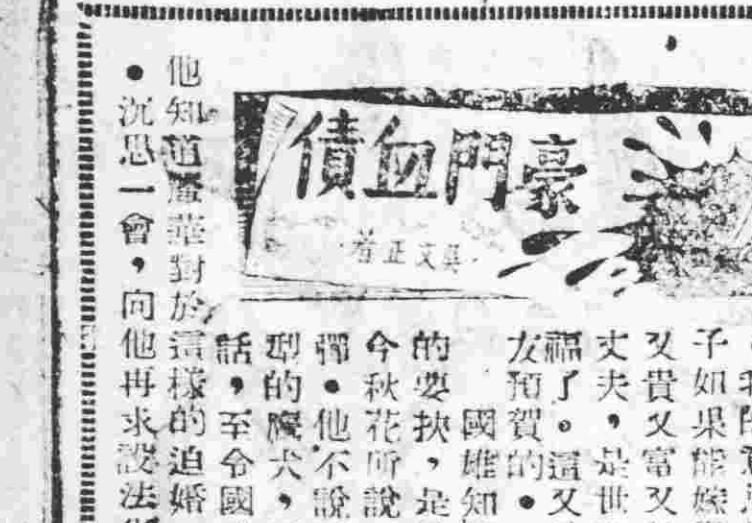 豪門血債
吳文正著
子如果能嫁
又貴又富又
丈夫，是世
福了。這又
友預賀的。
國雄知
的要挾，是
今秋花所說
彈。他不說
型的鷹犬，
話，至令國
他知道 華對於這樣的迫婚
。沉思一會，向他再求設法